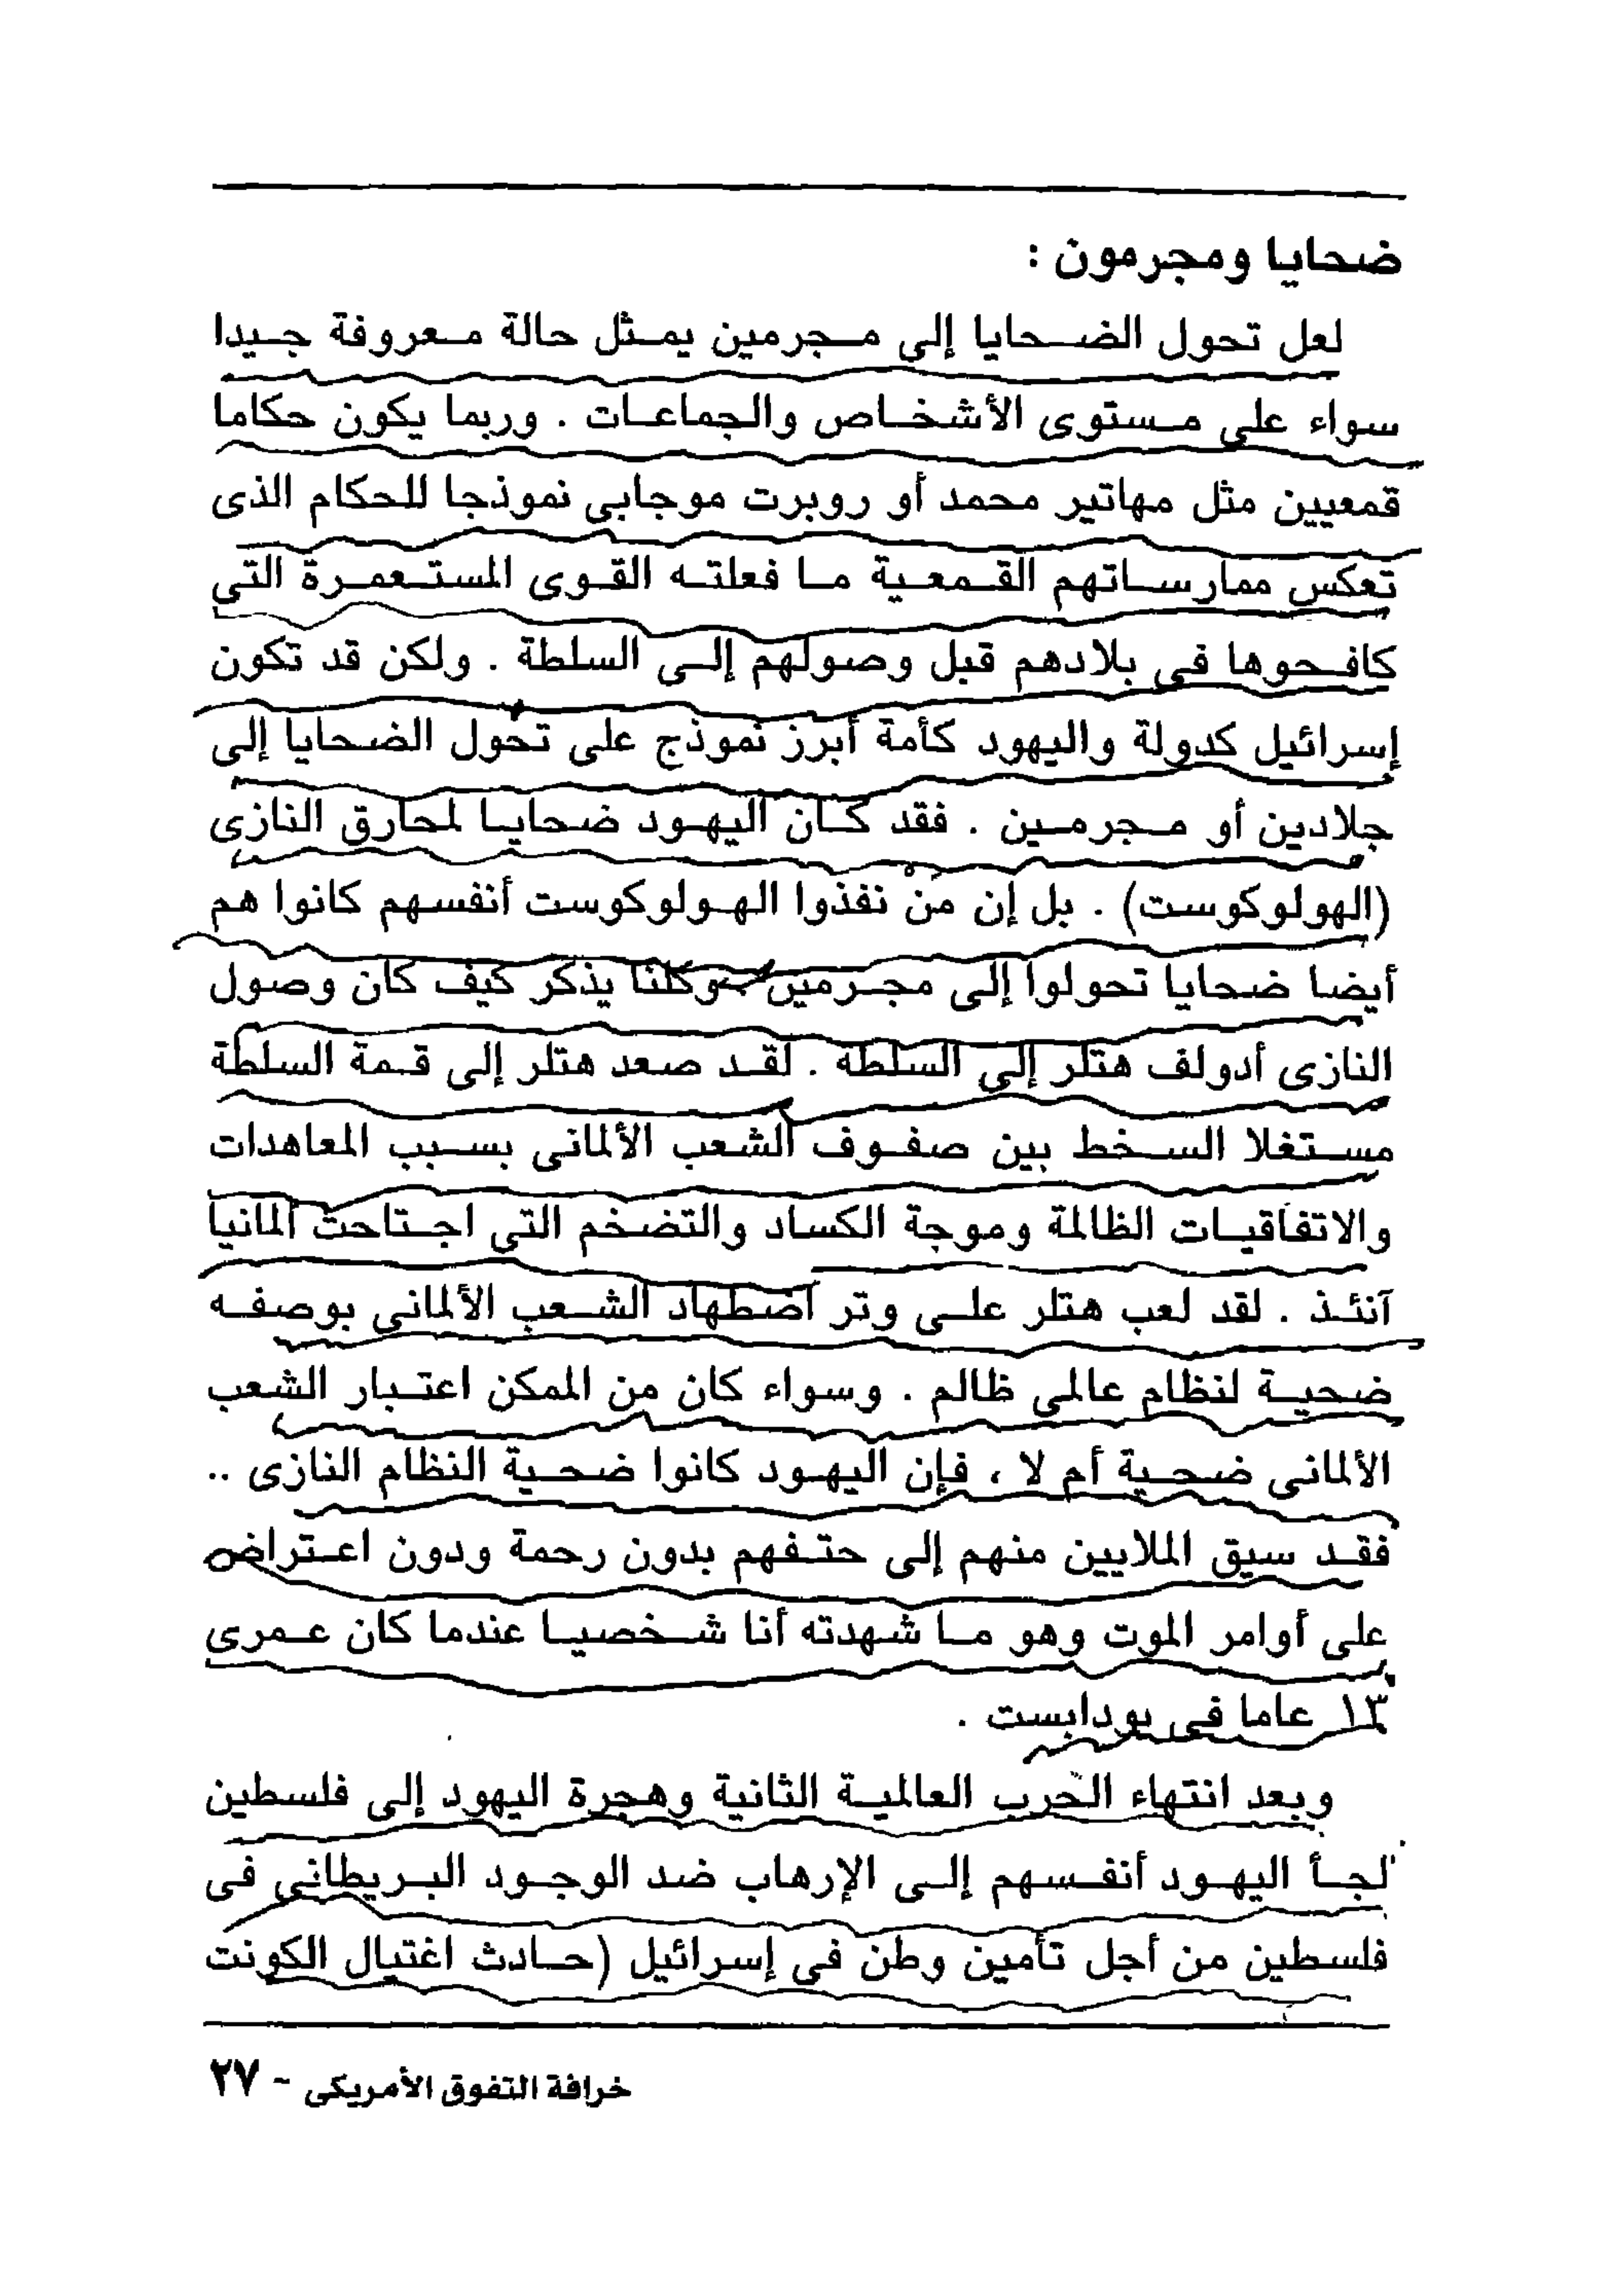 ضحايا ومجرمون :
لعل تحول الضحايا إلى مجرمين يمثل حالة معروفة جيدا
سواء على مستوى الأشخاص والجماعات . وربما يكون حكاما
قمعيين مثل مهاتير محمد أو روبرت موجابى نموذجا للحكام الذى
تعكس ممارساتهم القمعية ما فعلته القوى المستعمرة التى
كافحوها فى بلادهم قبل وصولهم إلى السلطة . ولكن قد تكون
إسرائيل كدولة واليهود كأمة أبرز نموذج على تحول الضحايا إلى
جلادين أو مجرمين . فقد كان اليهود ضحايا لمحارق النازى
(الهولوكوست) . بل إن مَنْ نفذوا الهولوكوست أنفسهم كانوا هم
أيضا ضحايا تحولوا إلى مجرمين وكلنا يذكر كيف كان وصول
النازى أدولف هتلر إلى السلطة . لقد صعد هتلر إلى قمة السلطة
مستغلا السخط بين صفوف الشعب الألمانى بسبب المعاهدات
والاتفاقيات الظالمة وموجة الكساد والتضخم التى اجتاحت ألمانيا
آنئذ . لقد لعب هتلر على وتر اضطهاد الشعب الألمانى بوصفه
ضحية لنظام عالمى ظالم . وسواء كان من الممكن اعتبار الشعب
الألمانى ضحية أم لا ، فإن اليهود كانوا ضحية النظام النازى ..
فقد سيق الملايين منهم إلى حتفهم بدون رحمة ودون اعتراض
على أوامر الموت وهو ما شهدته أنا شخصيا عندما كان عمرى
١٣ عاما فى بودابست .
وبعد انتهاء الحرب العالمية الثانية وهجرة اليهود إلى فلسطين
لجأ اليهود أنفسهم إلى الإرهاب ضد الوجود البريطانى فى
فلسطين من أجل تأمين وطن فى إسرائيل (حادث اغتيال الكونت
خرافة التفوق الأمريكى - ٢٧